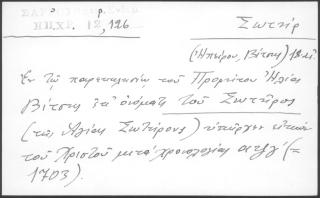 ΗΠ.ΧΡ. 12, 126
Σωτήρ
(Ἤπειρος, Βίτσης)
Ἐν τῷ παρεκκλησίῳ τοῦ Προφήτου Ἠλίας
Βίτσης ἐπ' ὀνόματι τοῦ Σωτῆρος
(τῶν Ἁγίας Σωτήρους) ὑπάρχει εἰκὼν
τοῦ Χριστοῦ μετὰ χρονολογίας αψγ' (=
1703).